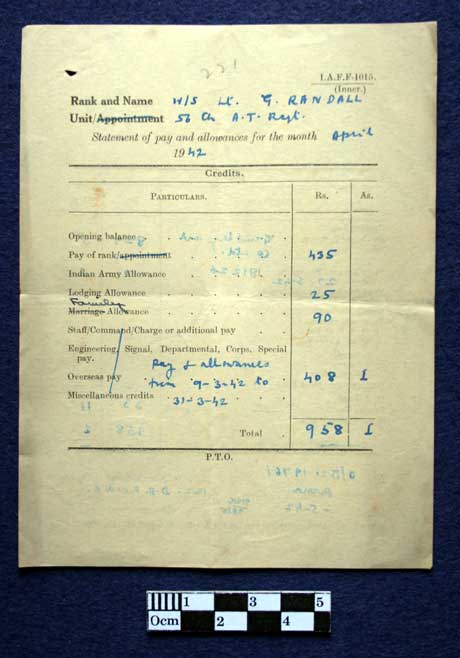 221
I.A.F.F-1015.
(Inner.)
Rank and Name W/S Lt. G. RANDALL
Unit/Appointment 56 Ch A.T. Regt.
Statement of pay and allowances for the month April
1942
Credits.
PARTICULARS. Rs. As.
Opening balance
Pay of rank/appointment 435
Indian Army Allowance
Lodging Allowance 25
Family
Marriage Allowance 90
Staff/Command/Charge or additional pay
Engineering, Signal, Departmental, Corps, Special
pay. Pay & allowances
Overseas pay from 9-3-42 to 408 1
Miscellaneous credits 31-3-42
Total 958 1
P.T.O.
1 3 5
0cm 2 4